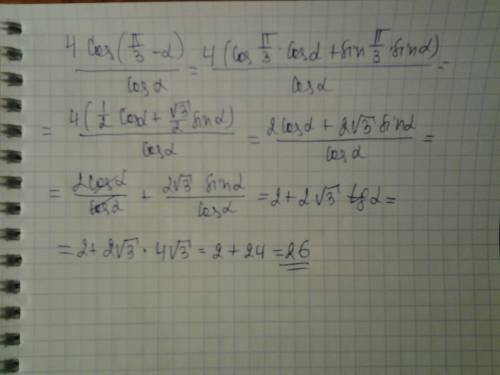 4 cos(π/3 - α) / cosα = 4 (cos π/3 · cosα + sin π/3 · sinα) / cosα =
= 4 (1/2 cosα + √3/2 sinα) / cosα = 2cosα + 2√3 · sinα / cosα =
= 2cosα / cosα + 2√3 sinα / cosα = 2 + 2√3 tgα =
= 2 + 2√3 · 4√3 = 2 + 24 = 26